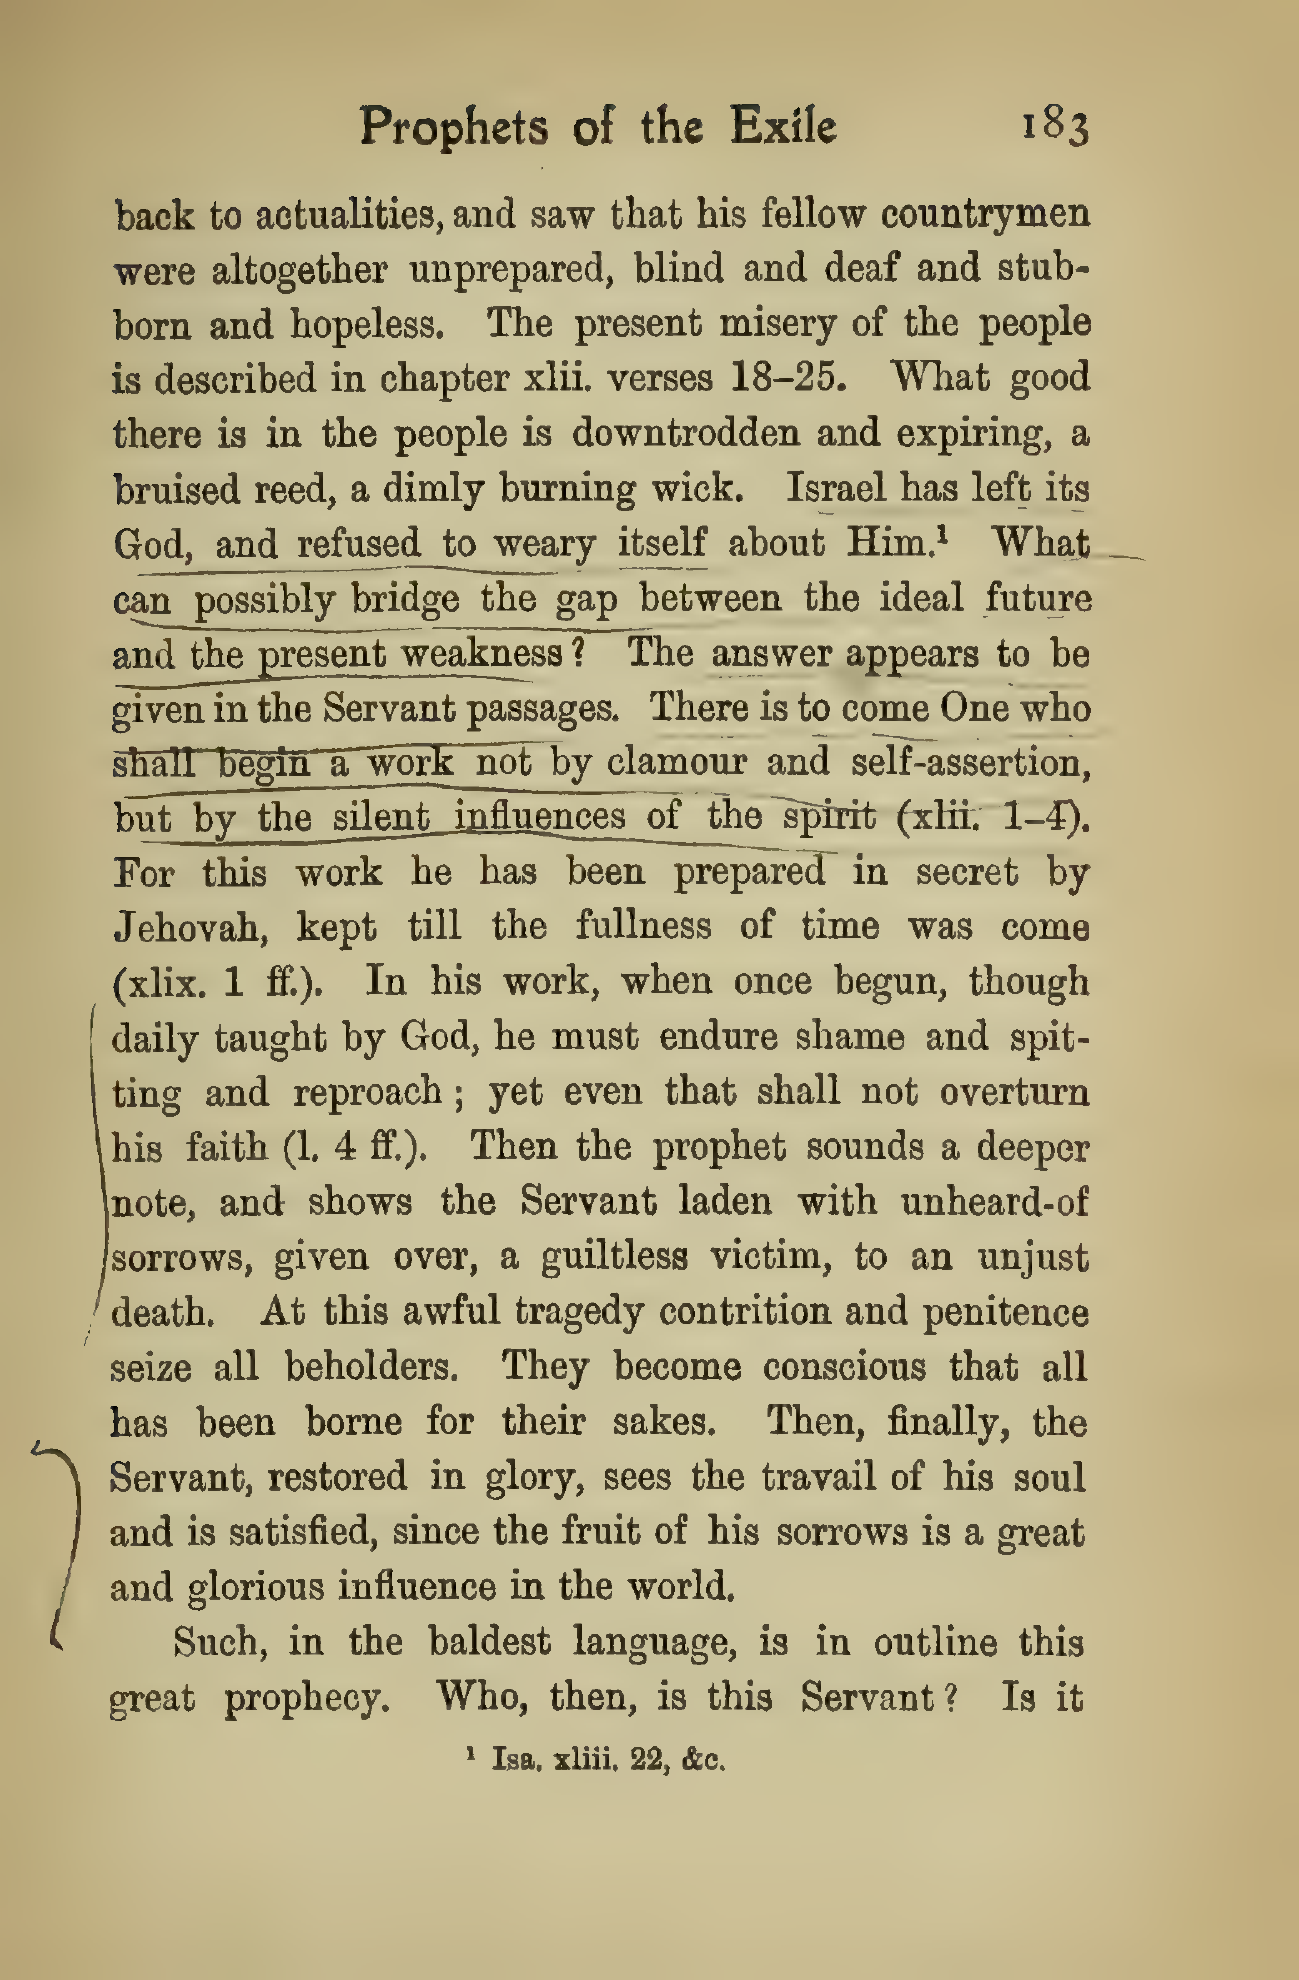 Prophets of the Exile 183
back to actualities, and saw that his fellow countrymen
were altogether unprepared, blind and deaf and stub-
born and hopeless. The present misery of the people
is described in chapter xlii. verses 18–25. What good
there is in the people is downtrodden and expiring, a
bruised reed, a dimly burning wick. Israel has left its
God, and refused to weary itself about Him.¹ What
can possibly bridge the gap between the ideal future
and the present weakness? The answer appears to be
given in the Servant passages. There is to come One who
shall begin a work not by clamour and self-assertion,
but by the silent influences of the spirit (xlii. 1–4).
For this work he has been prepared in secret by
Jehovah, kept till the fullness of time was come
(xlix. 1 ff.). In his work, when once begun, though
daily taught by God, he must endure shame and spit-
ting and reproach; yet even that shall not overturn
his faith (l. 4 ff.). Then the prophet sounds a deeper
note, and shows the Servant laden with unheard-of
sorrows, given over, a guiltless victim, to an unjust
death. At this awful tragedy contrition and penitence
seize all beholders. They become conscious that all
has been borne for their sakes. Then, finally, the
Servant, restored in glory, sees the travail of his soul
and is satisfied, since the fruit of his sorrows is a great
and glorious influence in the world.
Such, in the baldest language, is in outline this
great prophecy. Who, then, is this Servant? Is it
¹ Isa. xliii. 22, &c.